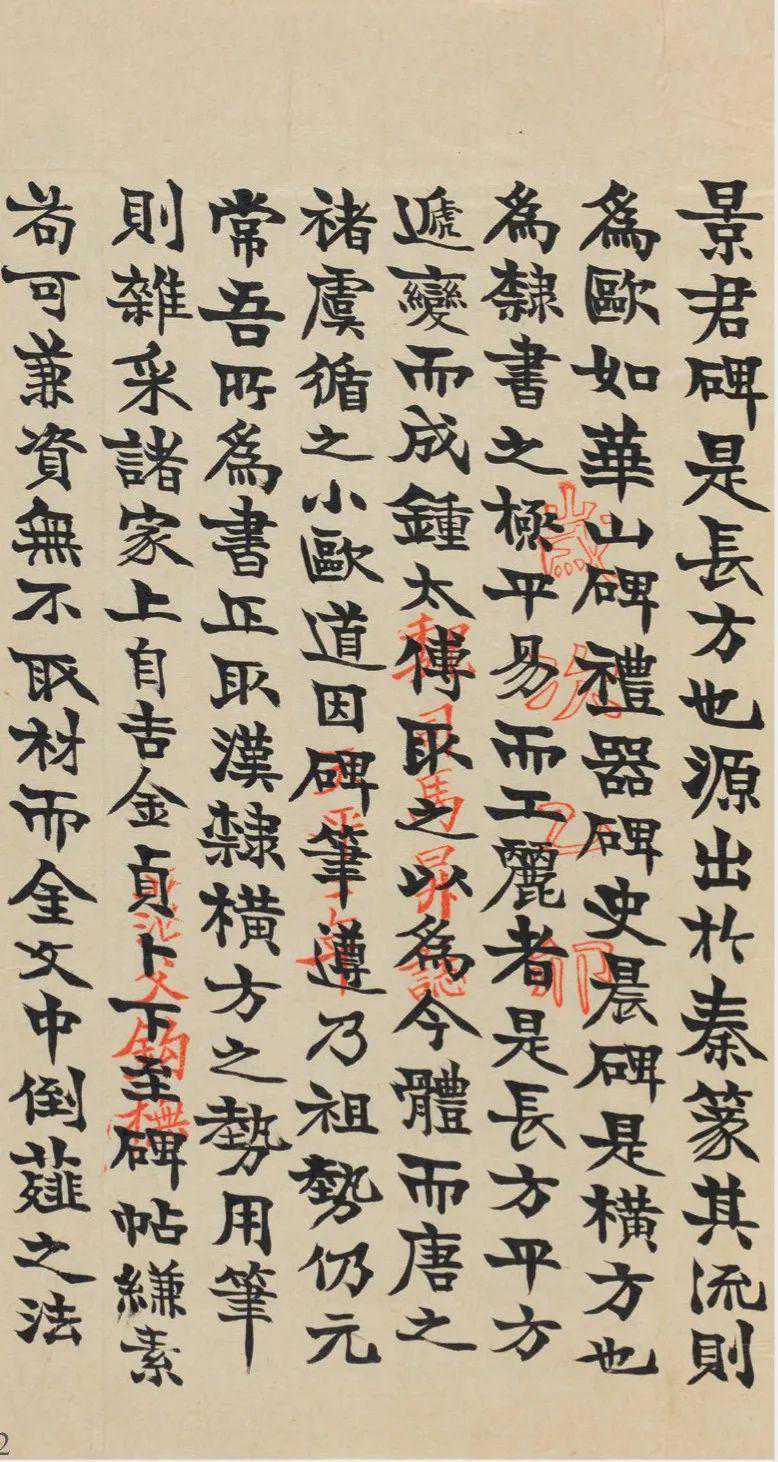 景君碑是長方也源出於秦篆其流則
爲歐如華山碑禮器碑史晨碑是橫方也
爲隸書之極平易而工麗者是長方平方
遞變而成鍾太傅取之以爲今體而唐之
褚虞循之小歐道因碑筆遵乃祖勢仍元
常吾所爲書正取漢隸橫方之勢用筆
則雜采諸家上自吉金貞卜下至碑帖縑素
苟可兼資無不取材而金文中倒薤之法
歲次乙卯
魏司馬昇誌
2